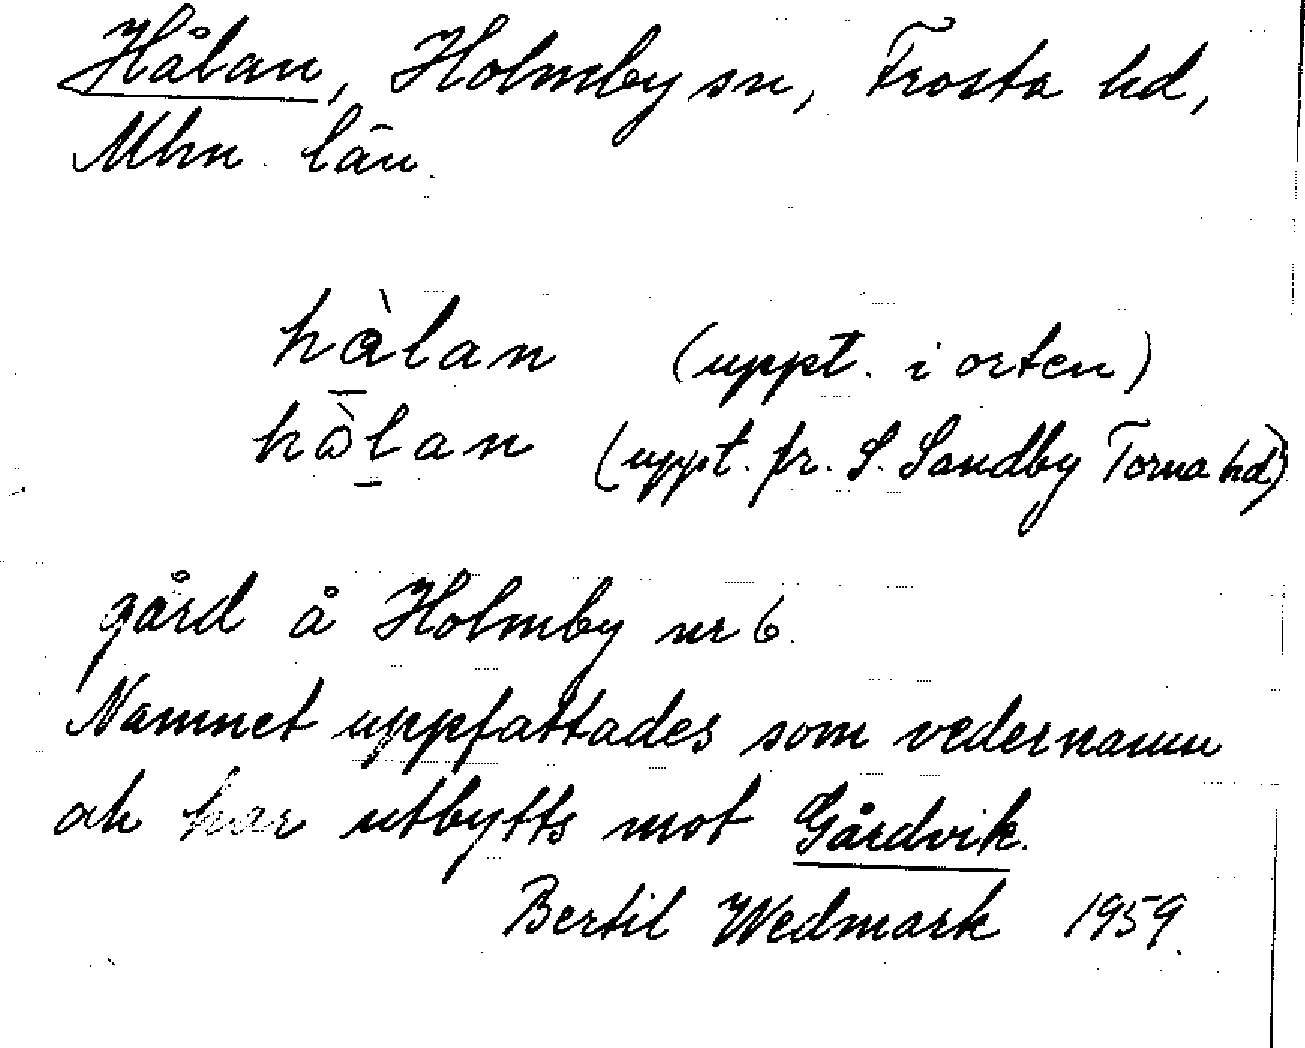 Hålan, Holmby sn, Frosta hd,
Mhn län.
hàlan (uppt. i orten)
hàlan (uppt. fr. S. Sandby Torna hd)
gård å Holmby nr 6.
Namnet uppfattades som vedernamn
och har utbytts mot Gårdvik.
Bertil Wedmark 1959.